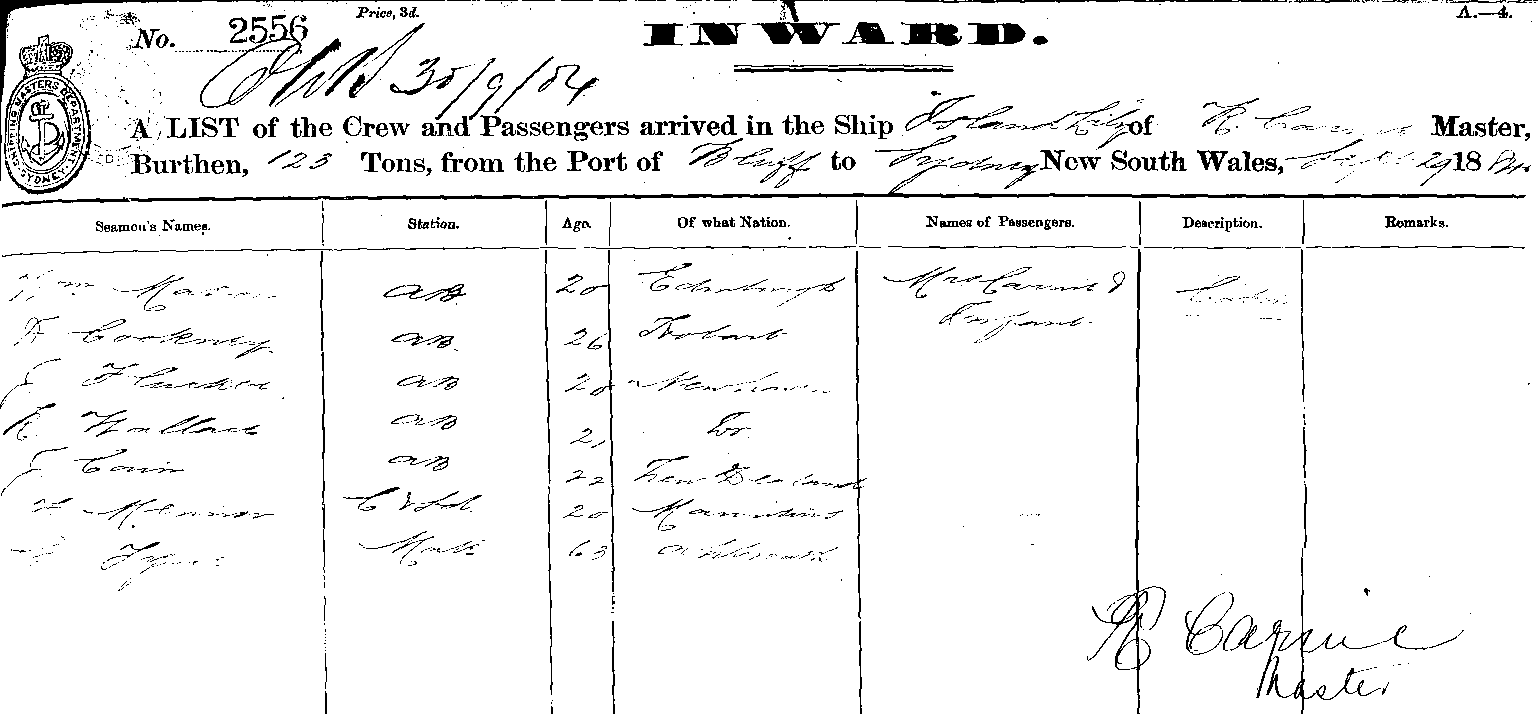 Price, 3d.
A.—4.
No. 2556
INWARD.
30/9/84
SHIPPING MASTERS DEPARTMENT SYDNEY
A LIST of the Crew and Passengers arrived in the Ship Island Lily of R. Carnie Master,
Burthen, 123 Tons, from the Port of Bluff to Sydney New South Wales, Sept 29 1884.
Seamen's Names. Station. Age. Of what Nation. Names of Passengers. Description. Remarks.
Wm Mason AB. 20 Edinburgh Mrs Carnie &
Cookney AB. 26 Hobart Infant.
AB 20 Newhaven
R. Wallace AB 21 Do.
J Cain AB 22 New Zealand
20 Mauritius
Mate 63
R Carnie
Master